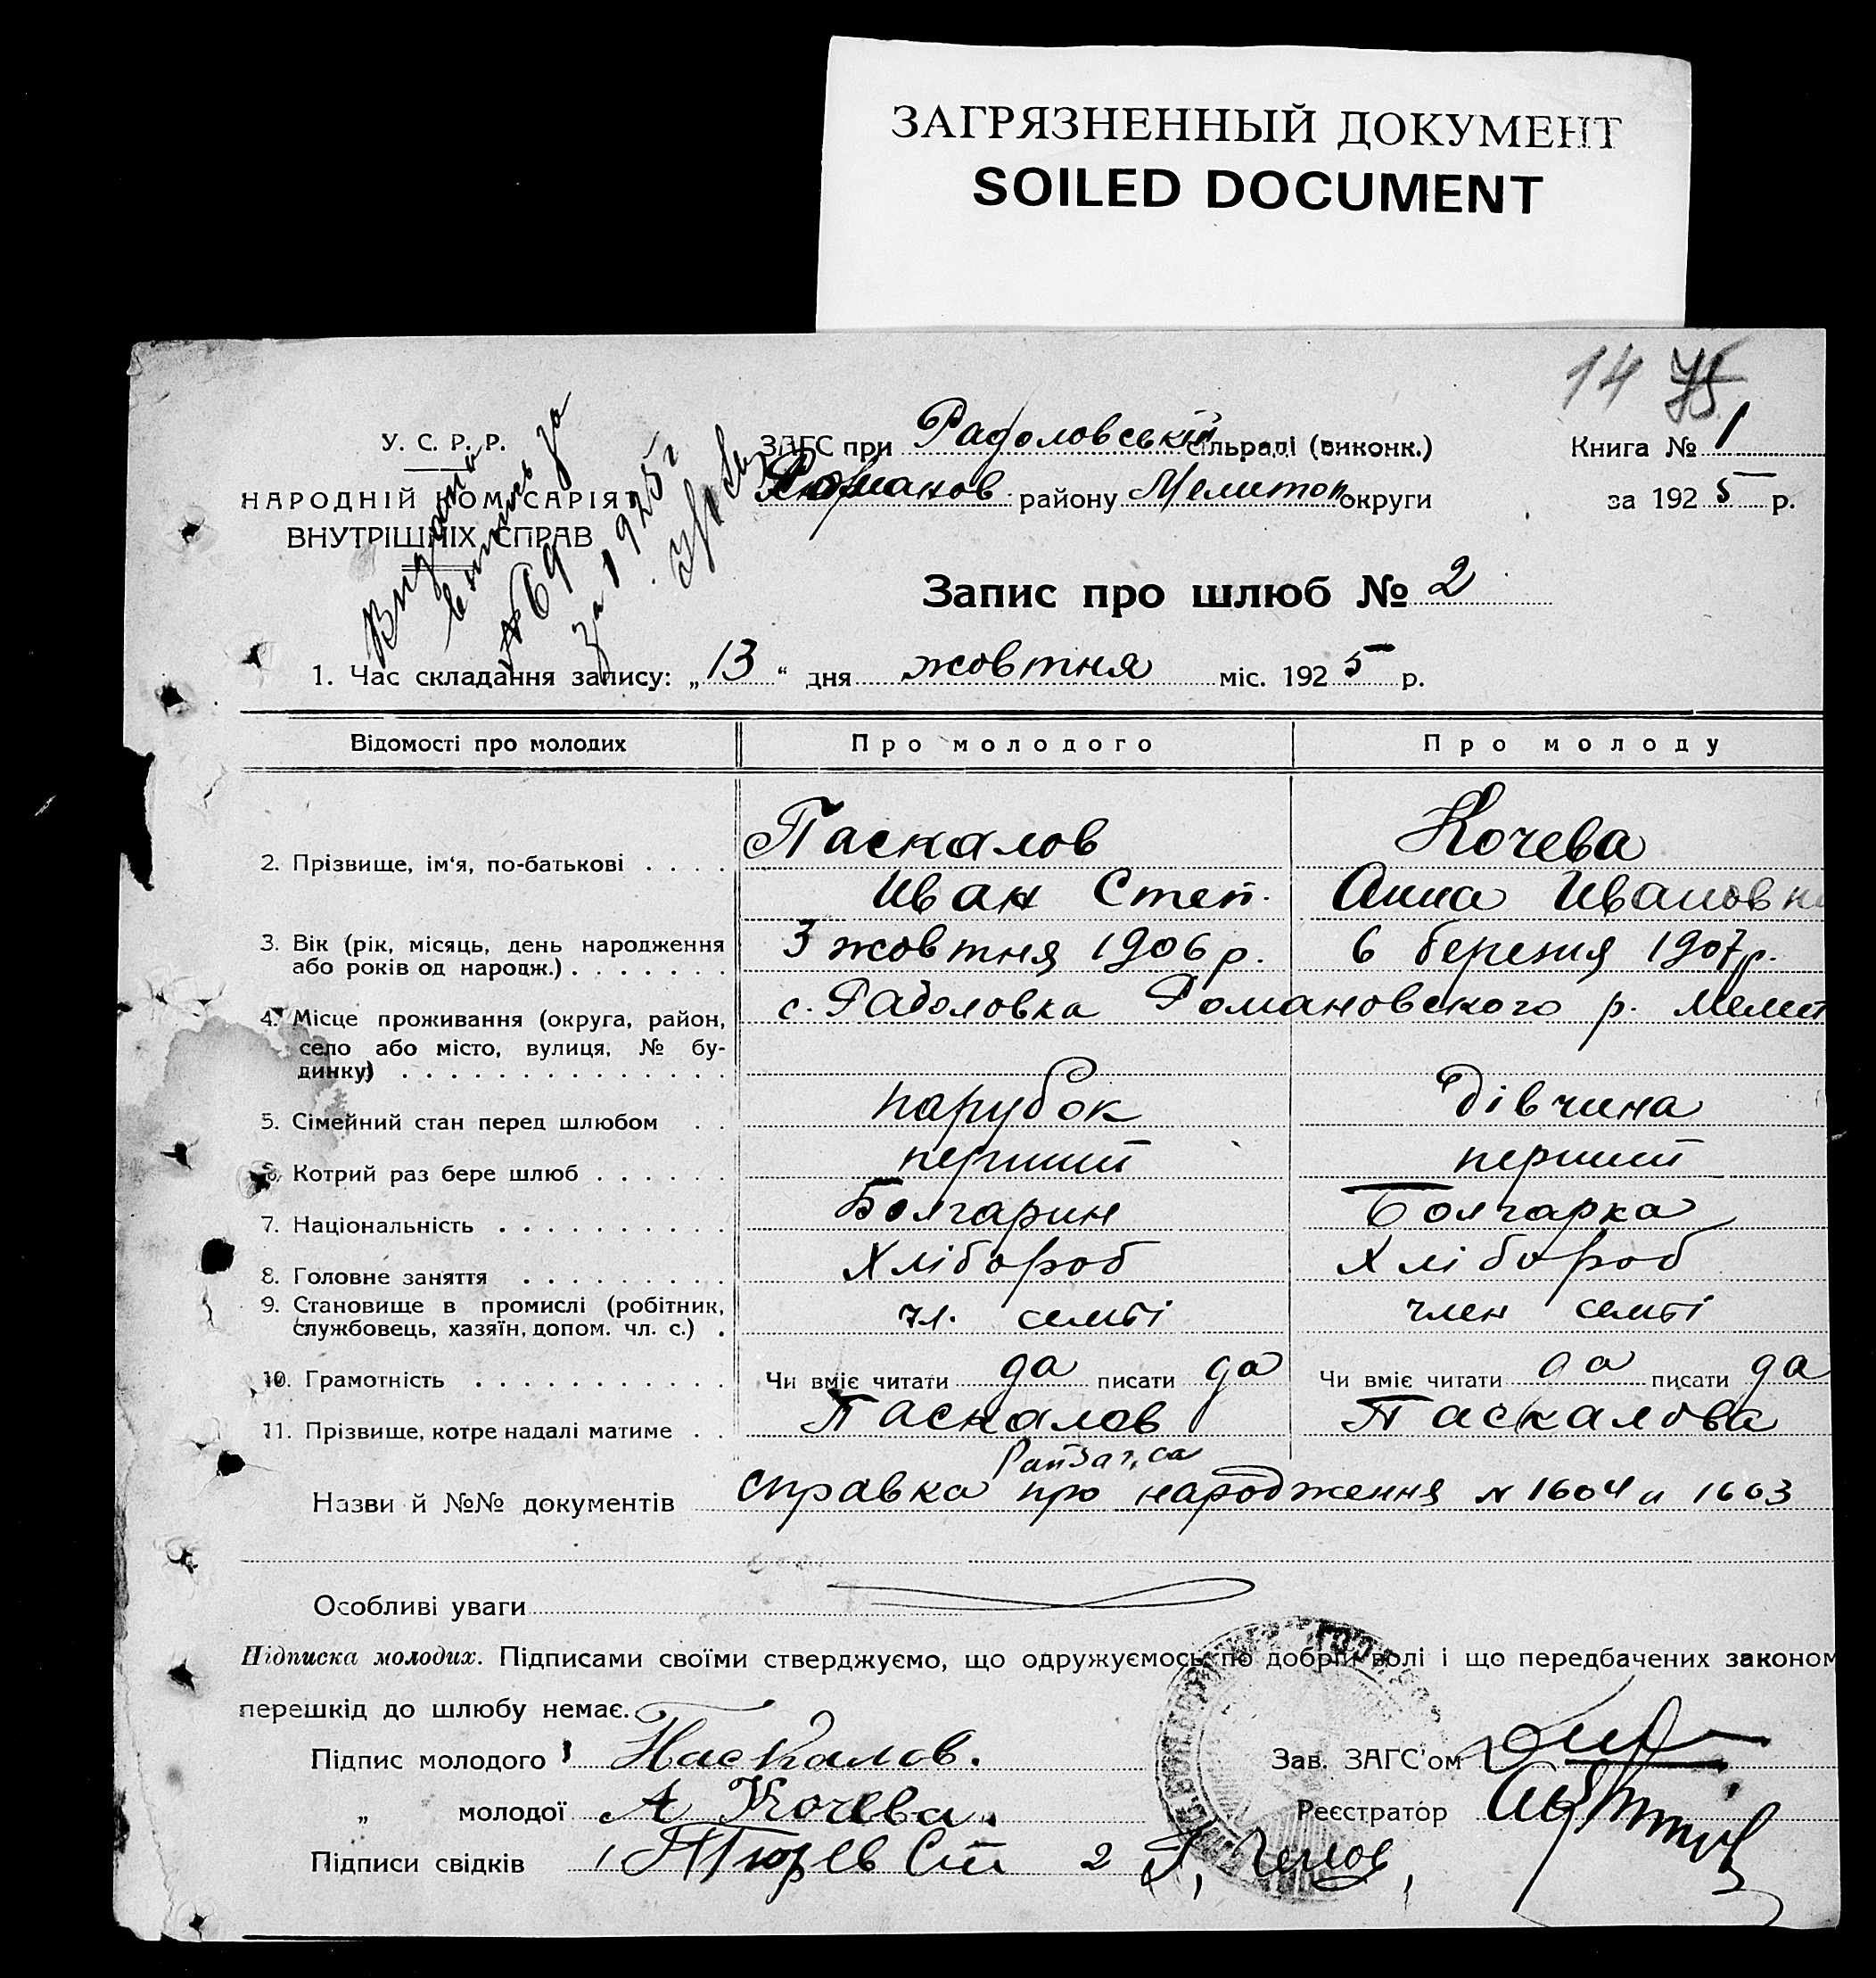 ЗАГРЯЗНЕННЫЙ ДОКУМЕНТ
SOILED DOCUMENT
14 75
У. С. Р. Р.
НАРОДНІЙ КОМІСАРІЯТ
ВНУТРІШНІХ СПРАВ
Видано
витяг за
№ 69
за 1925 г
ЗАГС при Радоловській сільраді (виконк.)
Романов району Мелитоп округи
Книга № 1
за 1925 р.
Запис про шлюб № 2
1. Час складання запису: „13“ дня жовтня міс. 1925 р.
Відомості про молодих Про молодого Про молоду
2. Прізвище, ім‘я, по-батькові . . . . Паскалов Кочева
Иван Степ. Анна Ивановна
3. Вік (рік, місяць, день народження 3 жовтня 1906 р. 6 березня 1907 р.
або років од народж.) . . . . . . .
4. Місце проживання (округа, район, с. Радоловка Романовского р. Мелит
село або місто, вулиця, № бу-
динку) . . . . . . . . . . . . . .
5. Сімейний стан перед шлюбом . . парубок дівчина
6. Котрий раз бере шлюб . . . . . . перший перший
7. Національність . . . . . . . . . . Болгарин Болгарка
8. Головне заняття . . . . . . . . . Хлібороб Хлібороб
9. Становище в промислі (робітник, чл. семьі член семьі
службовець, хазяїн, допом. чл. с.) .
10. Грамотність . . . . . . . . . . . Чи вміє читати да писати да Чи вміє читати да писати да
11. Прізвище, котре надалі матиме . . Паскалов Паскалова
Райзагса
Назви й №№ документів справка про народження № 1604 и 1603
Особливі уваги
Підписка молодих. Підписами своїми стверджуємо, що одружуємось по добрій волі і що передбачених законом
перешкід до шлюбу немає.
Підпис молодого Паскалов. Зав. ЗАГС‘ом
„ молодої А Кочева. Реєстратор
Підписи свідків 1 2